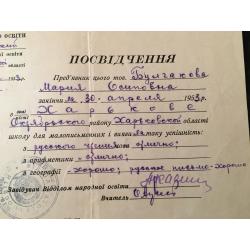 освіти
області
195 3 р.
ПОСВІДЧЕННЯ
Пред'явник цього тов. Булгакова
Мария Осиповна
закінчи ла 30 - апреля 195 3 р.
в місті Харькове
Октябрьского району Харьковской області
школу для малописьменних і виявила таку успішність:
з русского языка отлично;
з арифметики отлично;
з географії - хорошо; русское письмо - хорошо
Завідувач Відділом народної освіти
Вчитель